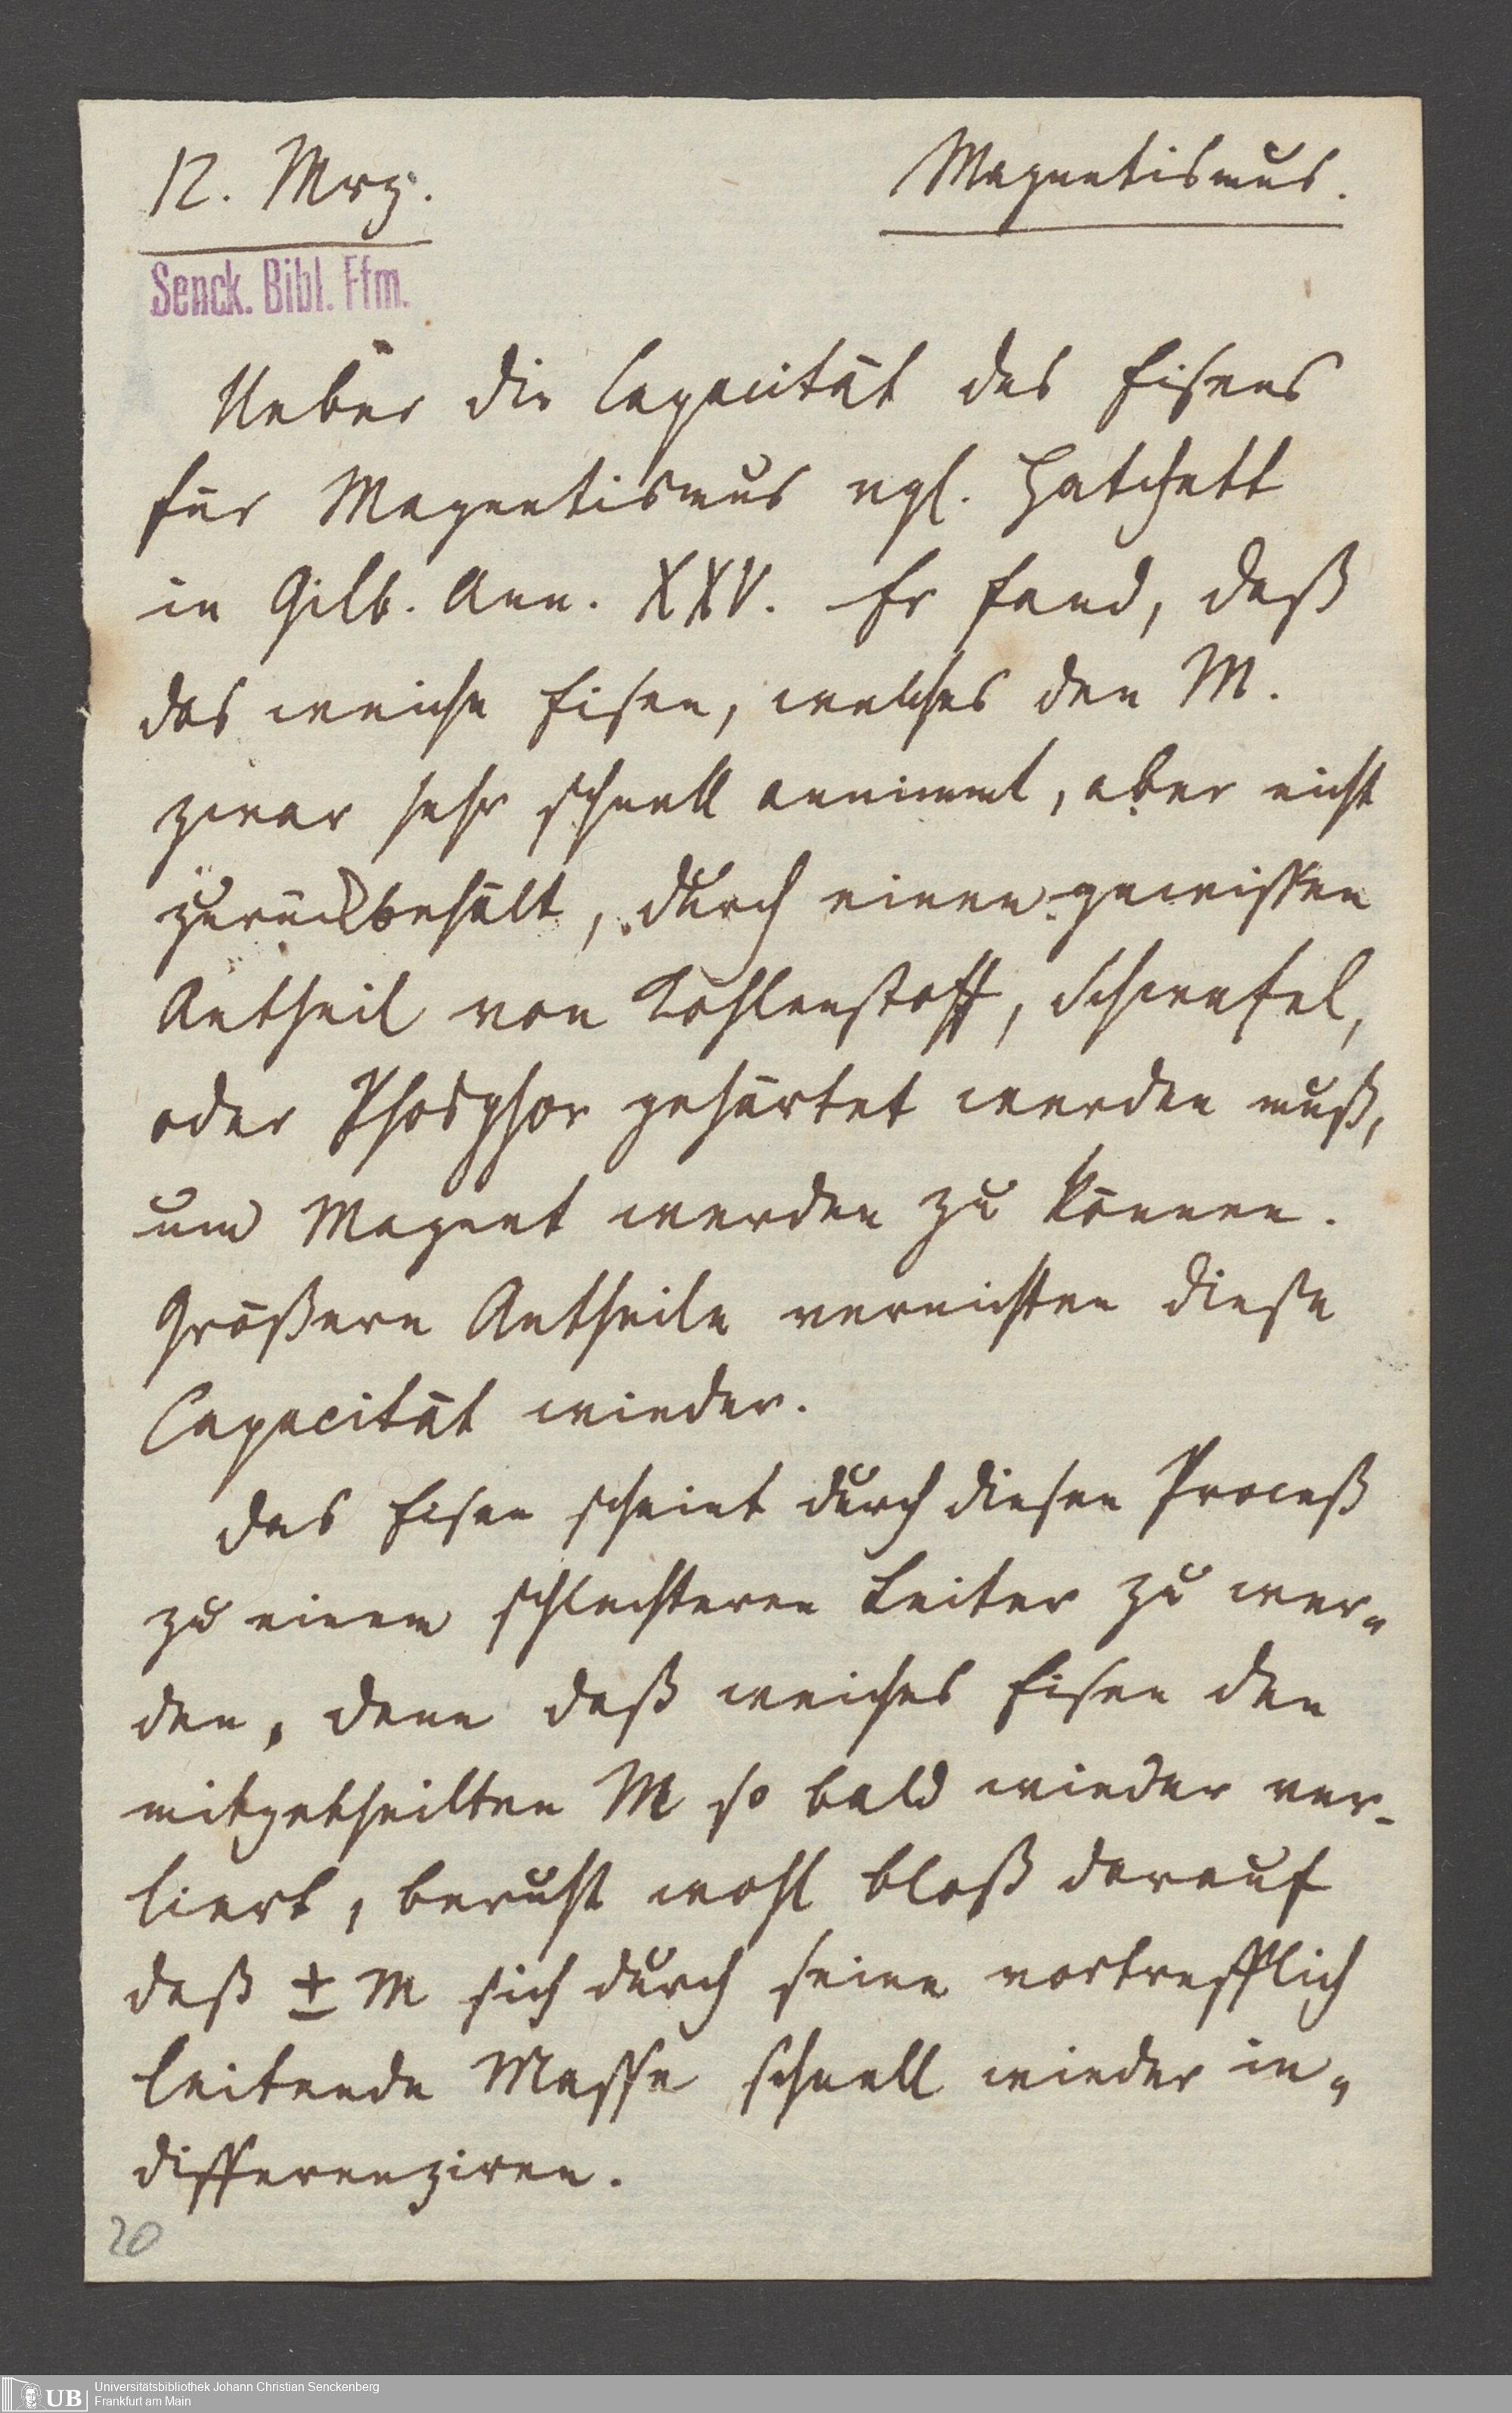 12. Mrz.
Magnetismus.
Senck. Bibl. Ffm.
Ueber die Capacität des Eisens
für Magnetismus vgl. Hatchett
in Gilb. Ann. XXV. Er fand, daß
das weiche Eisen, welches den M.
zwar sehr schnell annimmt, aber nicht
zurückbehält, durch einen gewissen
Antheil von Kohlenstoff, Schwefel,
oder Phosphor gehärtet werden muß,
um Magnet werden zu können.
Größere Antheile vernichten diese
Capacität wieder.
Das Eisen scheint durch diesen Proceß
zu einem schlechteren Leiter zu wer-
den, denn daß weiches Eisen den
mitgetheilten M so bald wieder ver-
liert, beruht wohl bloß darauf
daß ± M sich durch seine vortrefflich
leitende Masse schnell wieder in-
differenziren.
20
UB
Universitätsbibliothek Johann Christian Senckenberg
Frankfurt am Main